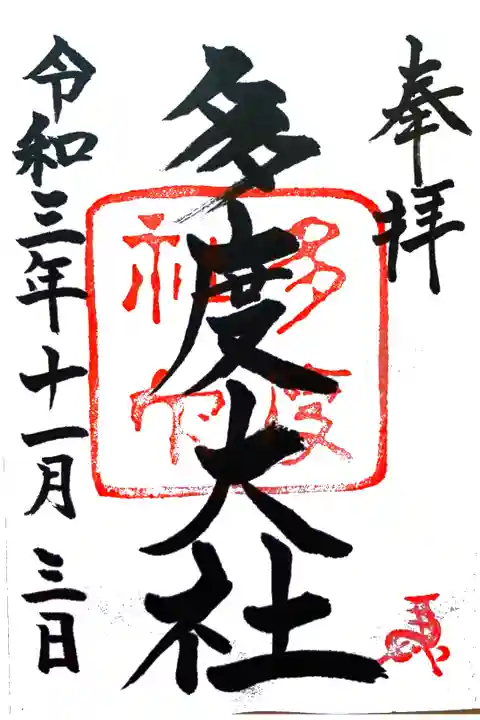 奉拝
多度大社
令和三年十一月三日
多度
神社